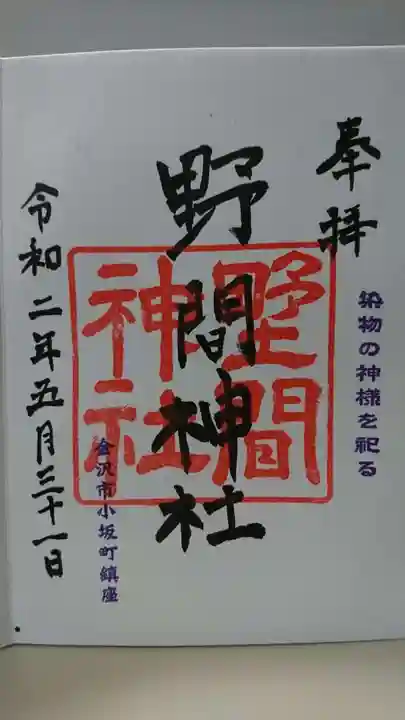 奉拝
染物の神様を祀る
野間神社
野間神社
金沢市小坂町鎮座
令和二年五月三十一日